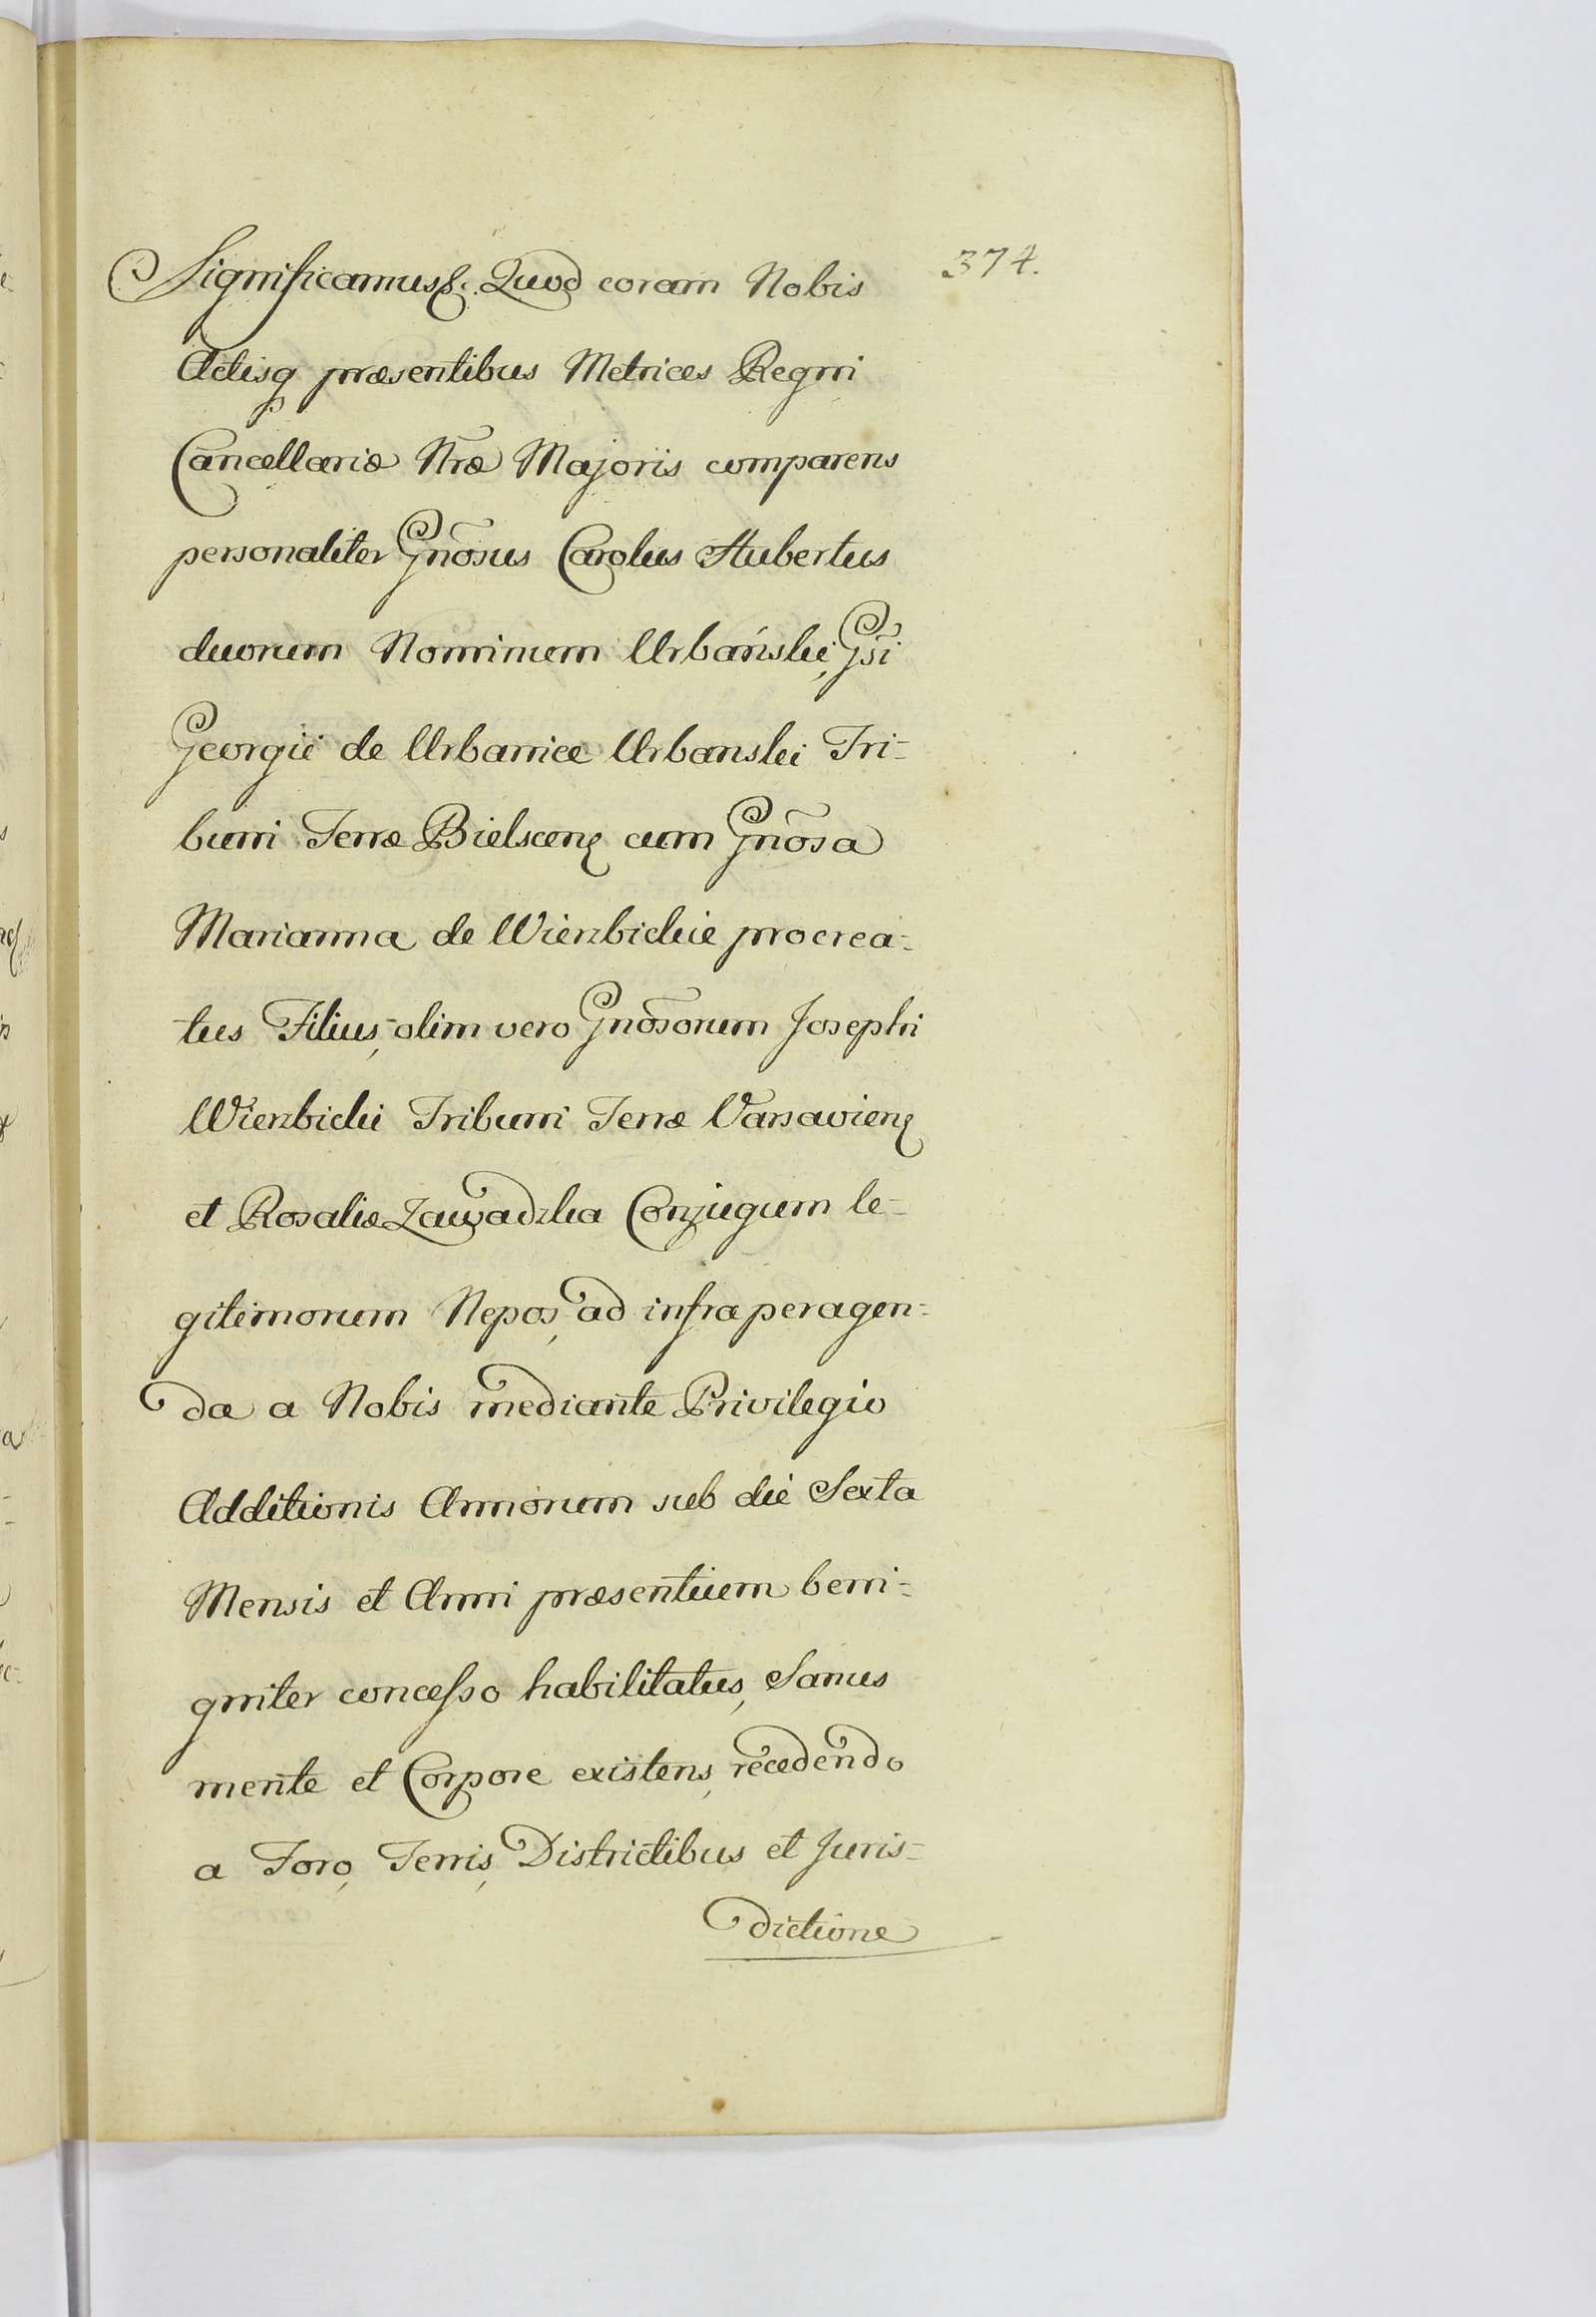 Significamus &. Quod coram Nobis 374.
Actisq præsentibus Metrices Regni
Cancellariæ Nr̃æ Majoris comparens
personaliter Gnõsus Carolus Hubertus
duorum Nominum Urbański, Gsĩ
Georgii de Urbanice Urbanski Tri=
buni Terræ Bielscenẽ cum Gnõsa
Marianna de Wierzbickie procrea=
tus Filius, olim vero Gnõsorum Josephi
Wierzbicki Tribuni Terræ Varsavienẽ
et Rosaliæ Zawadzka Conjugum le=
gitimorum Nepos, ad infra peragen=
da a Nobis mediante Privilegio
Additionis Annorum sub die Sexta
Mensis et Anni præsentium beni=
gniter concesso habilitatus, Sanus
mente et Corpore existens, recedendo
a Foro, Terris, Districtibus et Juris=
dictione